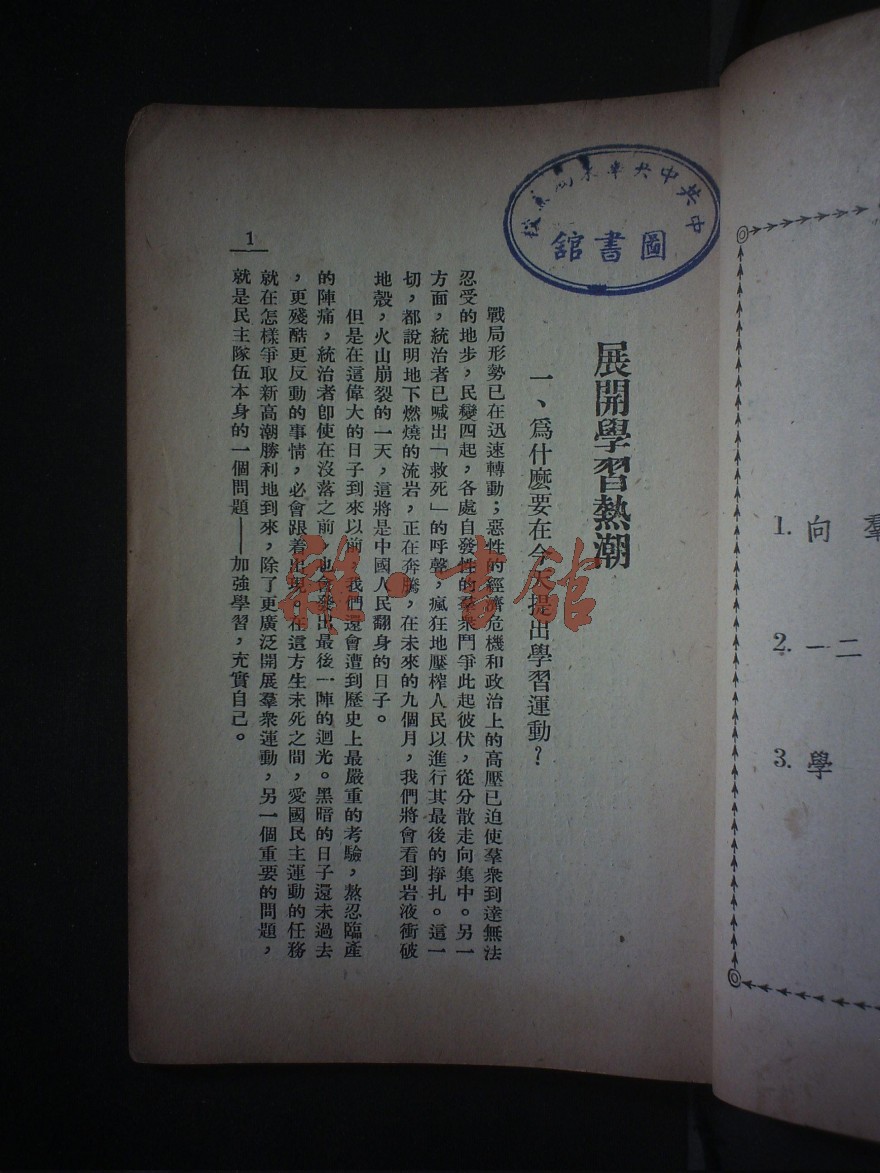 圖書館
展開學習熱潮
一、爲什麼要在今天提出學習運動？
戰局形勢已在迅速轉動；惡性的經濟危機和政治上的高壓已迫使羣衆到達無法
忍受的地步，民變四起，各處自發性的羣衆鬥爭此起彼伏，從分散走向集中。另一
方面，統治者已喊出「救死」的呼聲，瘋狂地壓榨人民以進行其最後的掙扎。這一
切，都說明地下燃燒的流岩，正在奔騰，在未來的九個月，我們將會看到岩液衝破
地殼，火山崩裂的一天，這將是中國人民翻身的日子。
但是在這偉大的日子到來以前，我們還會遭到歷史上最嚴重的考驗，熬忍臨產
的陣痛，統治者卽使在沒落之前，也會發出最後一陣的迴光。黑暗的日子還未過去
，更殘酷更反動的事情，必會跟着出現。在這方生未死之間，愛國民主運動的任務
就在怎樣爭取新高潮勝利地到來，除了更廣泛開展羣衆運動，另一個重要的問題，
就是民主隊伍本身的一個問題——加強學習，充實自己。
1
雜·書館
1. 向羣
2. 一二
3. 學